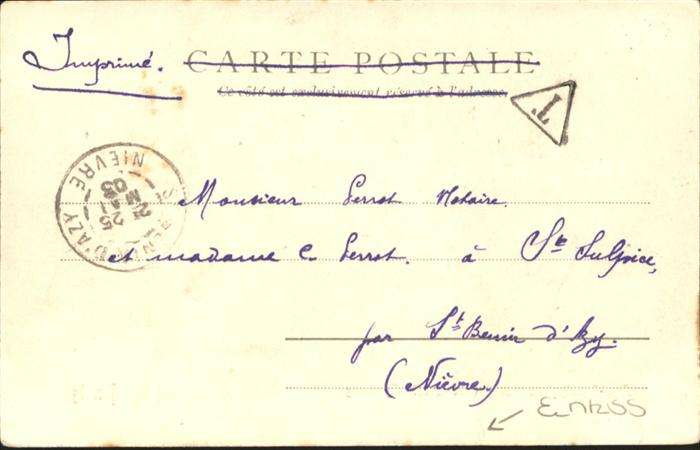 Imprimé.
CARTE POSTALE
Ce côté est exclusivement réservé à l'adresse
T
NIÈVRE
25
03
D'AZY
Monsieur Perrot Notaire.
et madame C. Perrot. à Ste Sulpice,
par St Benin d'Azy.
(Nièvre.)